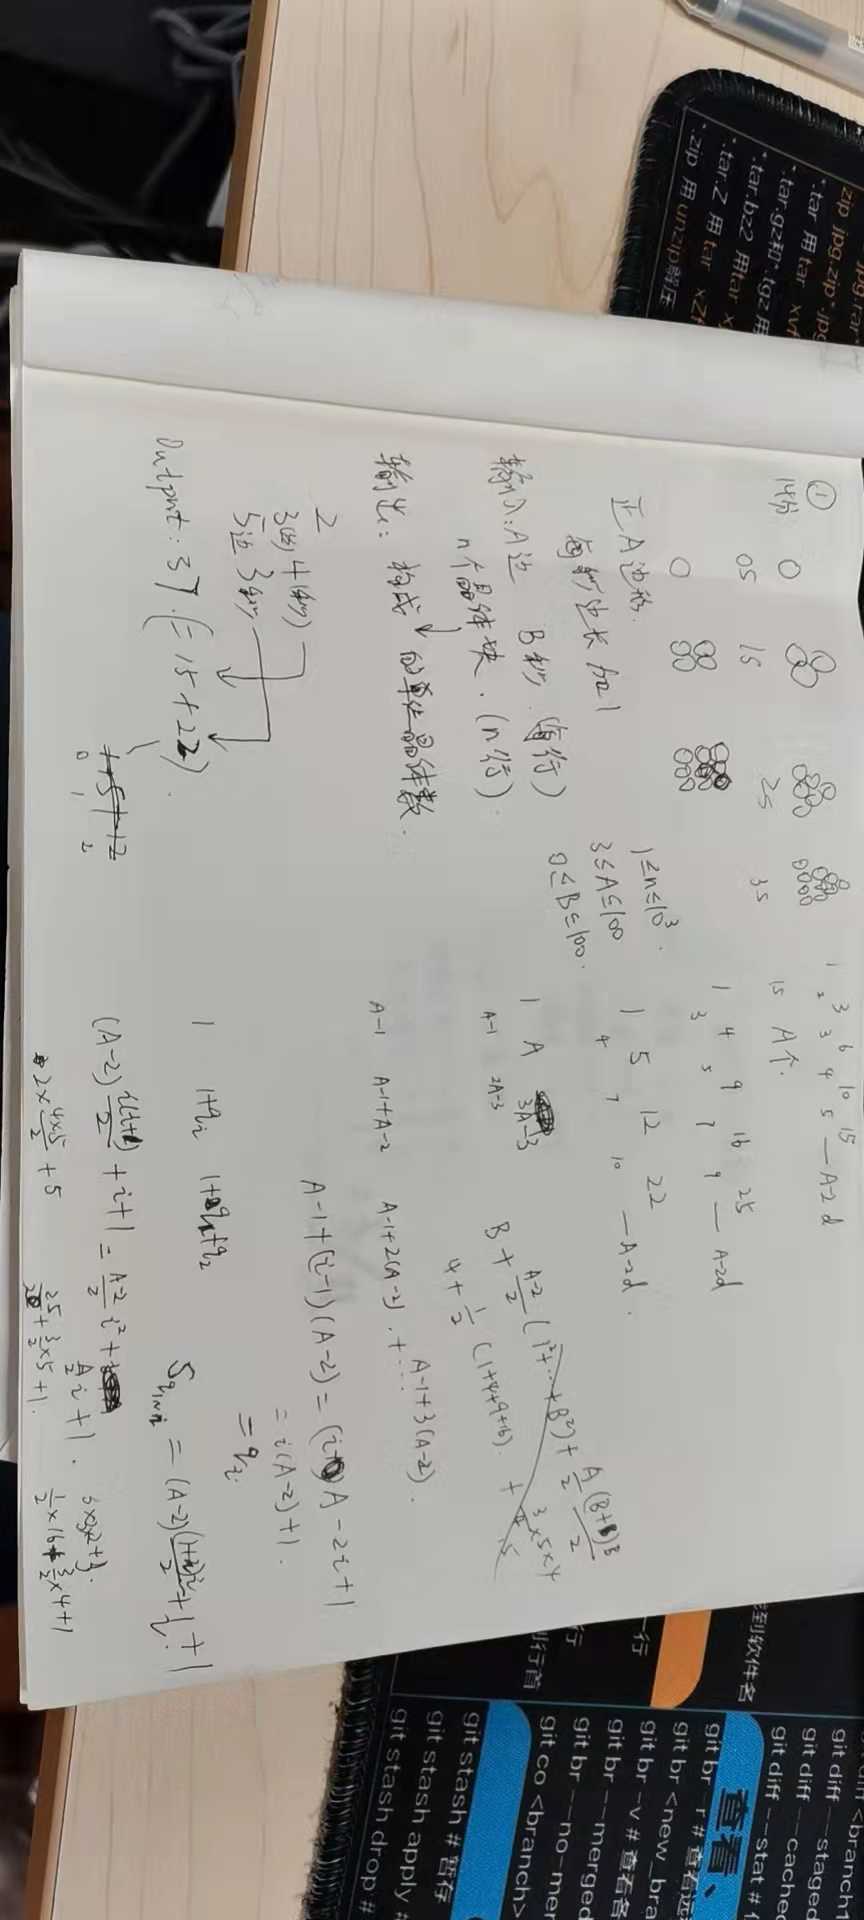 jpg.rar
zip jpg.zip *.jpg
*.tar 用 tar xvf
*.tar.gz和*.tgz 用
*.tar.bz2 用tar xj
*.tar.Z 用 tar xZf
*.zip 用 unzip解压
①
14分
0s 1s 2s 3s
正A边形.
每秒边长加1
输入:A边 B秒 (每行)
n个晶体块.(n行)
输出: 构成 的单位晶体数.
2
3(边) 4(秒)
5边 3秒
Output: 37 (=15+22).
1+5+12
0 1 2
1≤n≤10³.
3≤A≤100
0≤B≤100.
1 3 6 10 15
2 3 4 5 — A-2 d
15 A个.
1 4 9 16 25
3 5 7 9 — A-2d
1 5 12 22
4 7 10 — A-2d.
1 A 3A-3
A-1 2A-3
B + A-2/2 (1²+…+B²) + A/2 (B+1)B/2
4 + 1/2 (1+4+9+16) + 3/4 ×5×4
A-1 A-1+A-2 A-1+2(A-2) .+… A-1+3(A-2).
A-1+(i-1)(A-2) = A-2i+1
= i(A-2)+1.
= qi
1 1+qi 1+q1+q2
= (A-2) (1+i)i/2 + i + 1
(A-2) i(i+1)/2 + i+1 = A-2/2 i² +
A/2 i + 1.
2× 4×5/2 + 5
+ 3/2 ×5 +1.
1/2 ×16 + 3/2 ×4+1
git diff <branch1
git diff --staged
git diff --cached
git diff --stat #
查看、
找到软件名
git br -r # 查看远
git br <new_bra
git br -v # 查看各
git br --merged
git br --no-mer
git co <branch>
一行
行
到行首
git stash # 暂存
git stash apply #
git stash drop #